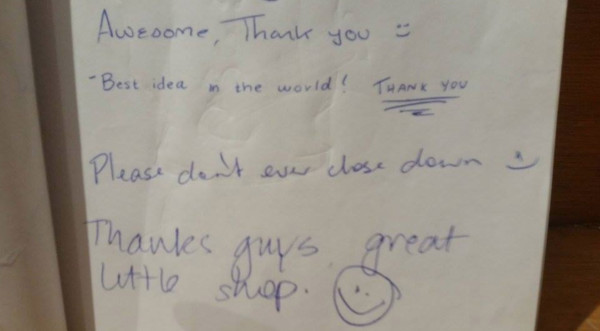 Awesome, Thank you :)
- Best idea in the world! THANK YOU
Please don't ever close down :)
Thanks guys, great
little shop.